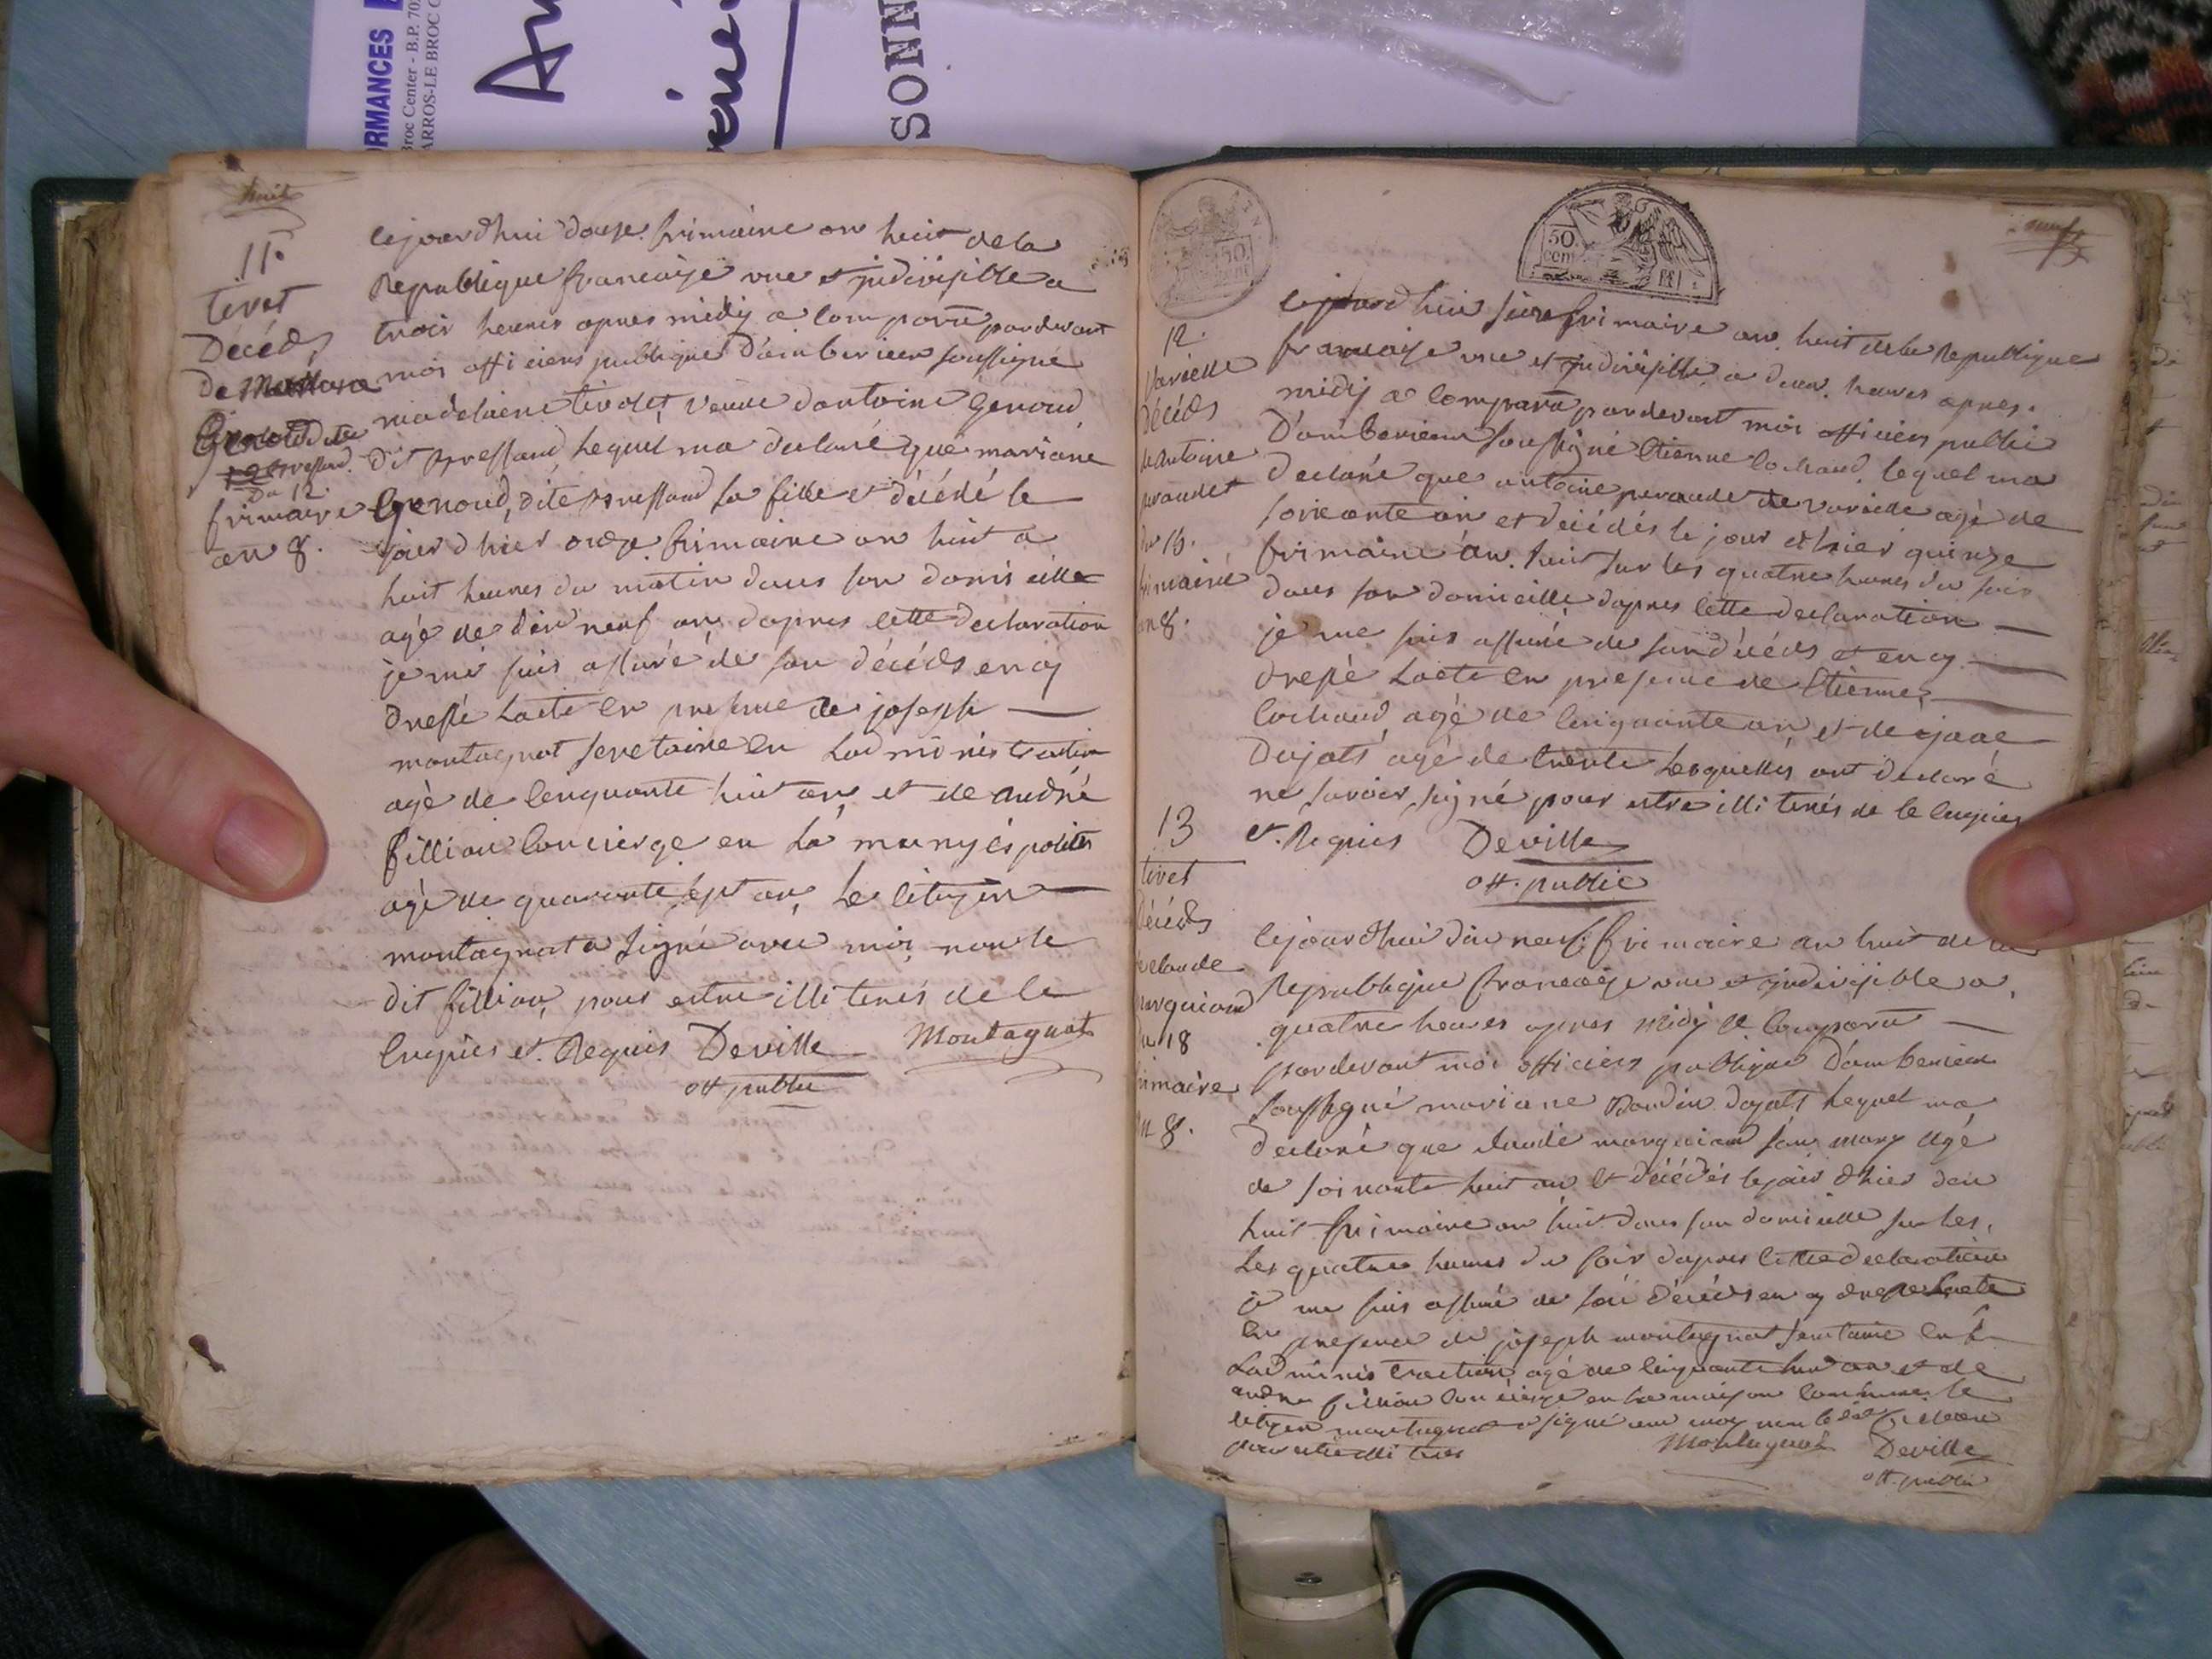 RMANCES
Broc Center - B.P. 70
ARROS-LE BROC C
SONN
huit
11.
tiret
Décéds
De
Genoud dite
Du 12.
frimaire
an 8.
Cejourdhui douze frimaire an huit de la
Republique francaise une et jndivisible a
trois heures apres midy a comparu pardevant
moi officiers publique d'amberieux soussigné
madelaine tivolet veuve dantoine Genoud
dit Bressand Lequel ma declaré que mariane
Genoud, dite Bressand sa fille et décédé le
jour d'hier onze frimaire an huit a
huit heures du matin dans son domicille
agé de dix neuf an, dapres cette declaration
je me suis assuré de son décéds en ay
dressé Lacte en presence de joseph
montagnat secretaire en Ladministration
agé de cenquante huit ans et de andré
fillion Concierge en La
agé de quarante sept an, Le citoyen
montagnat a signé avec moi, non le
dit fillion, pour estre illiterés de ce
enquies et Requis Deville Montagnat
off. public
neuf
50 cent
12.
Varielle
Décéds
de antoine
peraudet
du 16.
frimaire
an 8.
Cejourdhui seize frimaire an huit de la Republique
francaise une et jndivisible a deux heures apres
midy a comparu pardevant moi officiers public
D'amberieux soussigné Etienne Cochaud, lequel ma
declaré que antoine peraudet de varielle agé de
soixante an et décédés le jour d'hier quinze
frimaire an huit sur les quatre heures du soir
dans son domicille, dapres cette declaration
je me suis assuré de son décéds et en ay
dressé Lacte en presence de Etienne
Cochaud agé de cenquante an et de
Dujats agé de trente Lesquelles ont declaré
ne savoir signé pour estre illiterés de ce enquies
et Requies Deville
off. public
13
tiret
Décéds
de claude
marguiand
du 18
frimaire
an 8.
Cejourdhui dix neuf frimaire an huit de la
Republique francaise une et jndivisible a
quatre heures apres midy a comparu
pardevant moi officiers publique D'amberieux
soussigné mariane Dujats Lequel ma
declaré que claude marguiand son mary agé
de soixante huit an et décédés le jour d'hier dix
huit frimaire an huit dans son domicille sur les
Les quatre heures du soir dapres cette declaration
je me suis assuré de son décéds en ay dressé Lacte
en presence de joseph montagnat secretaire en
Ladministration agé de cenquante huit an et de
andré fillion concierge en La maison commune le
citoyen montagnat a signé avec moy non le dit fillion
pour estre illiteres Montagnat Deville
off. public